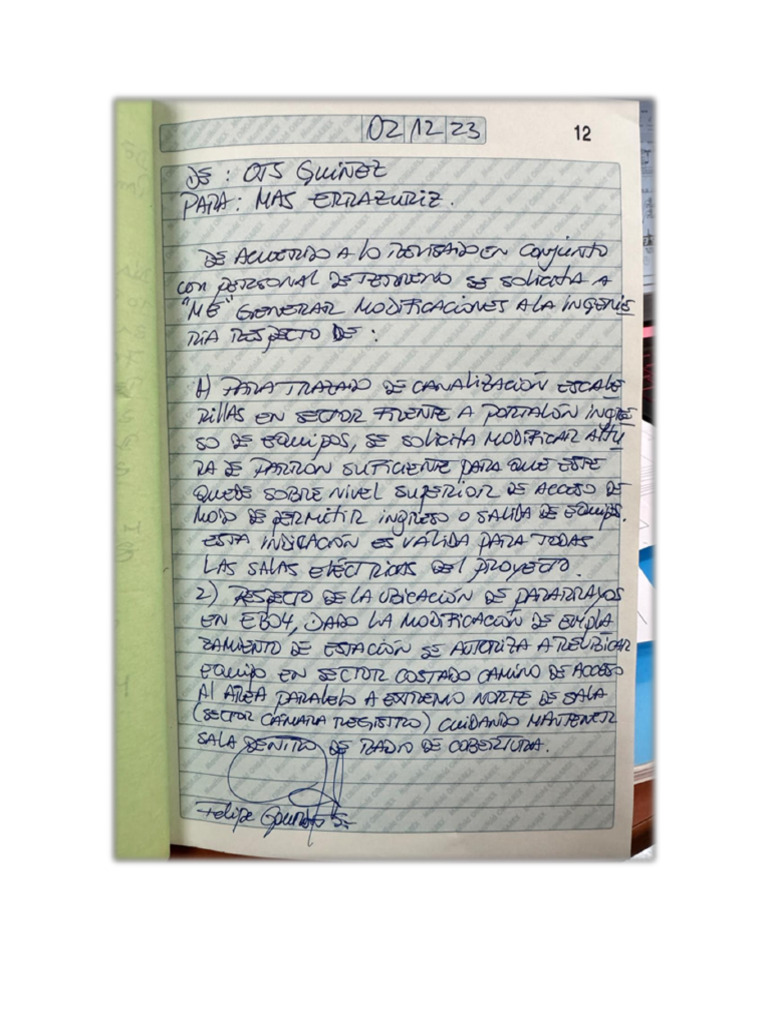 02 12 23
12
DE : OTS QUIÑEZ
PARA: MAS ERRAZURIZ.
DE ACUERDO A LO REVISADO EN CONJUNTO
CON PERSONAL DE TERRENO SE SOLICITA A
"ME" GENERAR MODIFICACIONES A LA INGENIE
RIA RESPECTO DE :
1) PARA TRAZADO DE CANALIZACIÓN ESCALE
RILLAS EN SECTOR FRENTE A PORTALÓN INGRE
SO DE EQUIPOS, SE SOLICITA MODIFICAR ALTU
RA DE PARRON SUFICIENTE PARA QUE ESTE
QUEDE SOBRE NIVEL SUPERIOR DE ACCESO DE
MODO DE PERMITIR INGRESO O SALIDA DE EQUIPOS.
ESTA INDICACIÓN ES VÁLIDA PARA TODAS
LAS SALAS ELÉCTRICAS DEL PROYECTO.
2) RESPECTO DE LA UBICACIÓN DE PARARRAYOS
EN EB04, DADO LA MODIFICACIÓN DE EMPLA
ZAMIENTO DE ESTACIÓN SE AUTORIZA A REUBICAR
EQUIPO EN SECTOR COSTADO CAMINO DE ACCESO
AL AREA PARALELO A EXTREMO NORTE DE SALA
(SECTOR CÁMARA REGISTRO) CUIDANDO MANTENER
SALA DENTRO DE RADIO DE COBERTURA.
Felipe